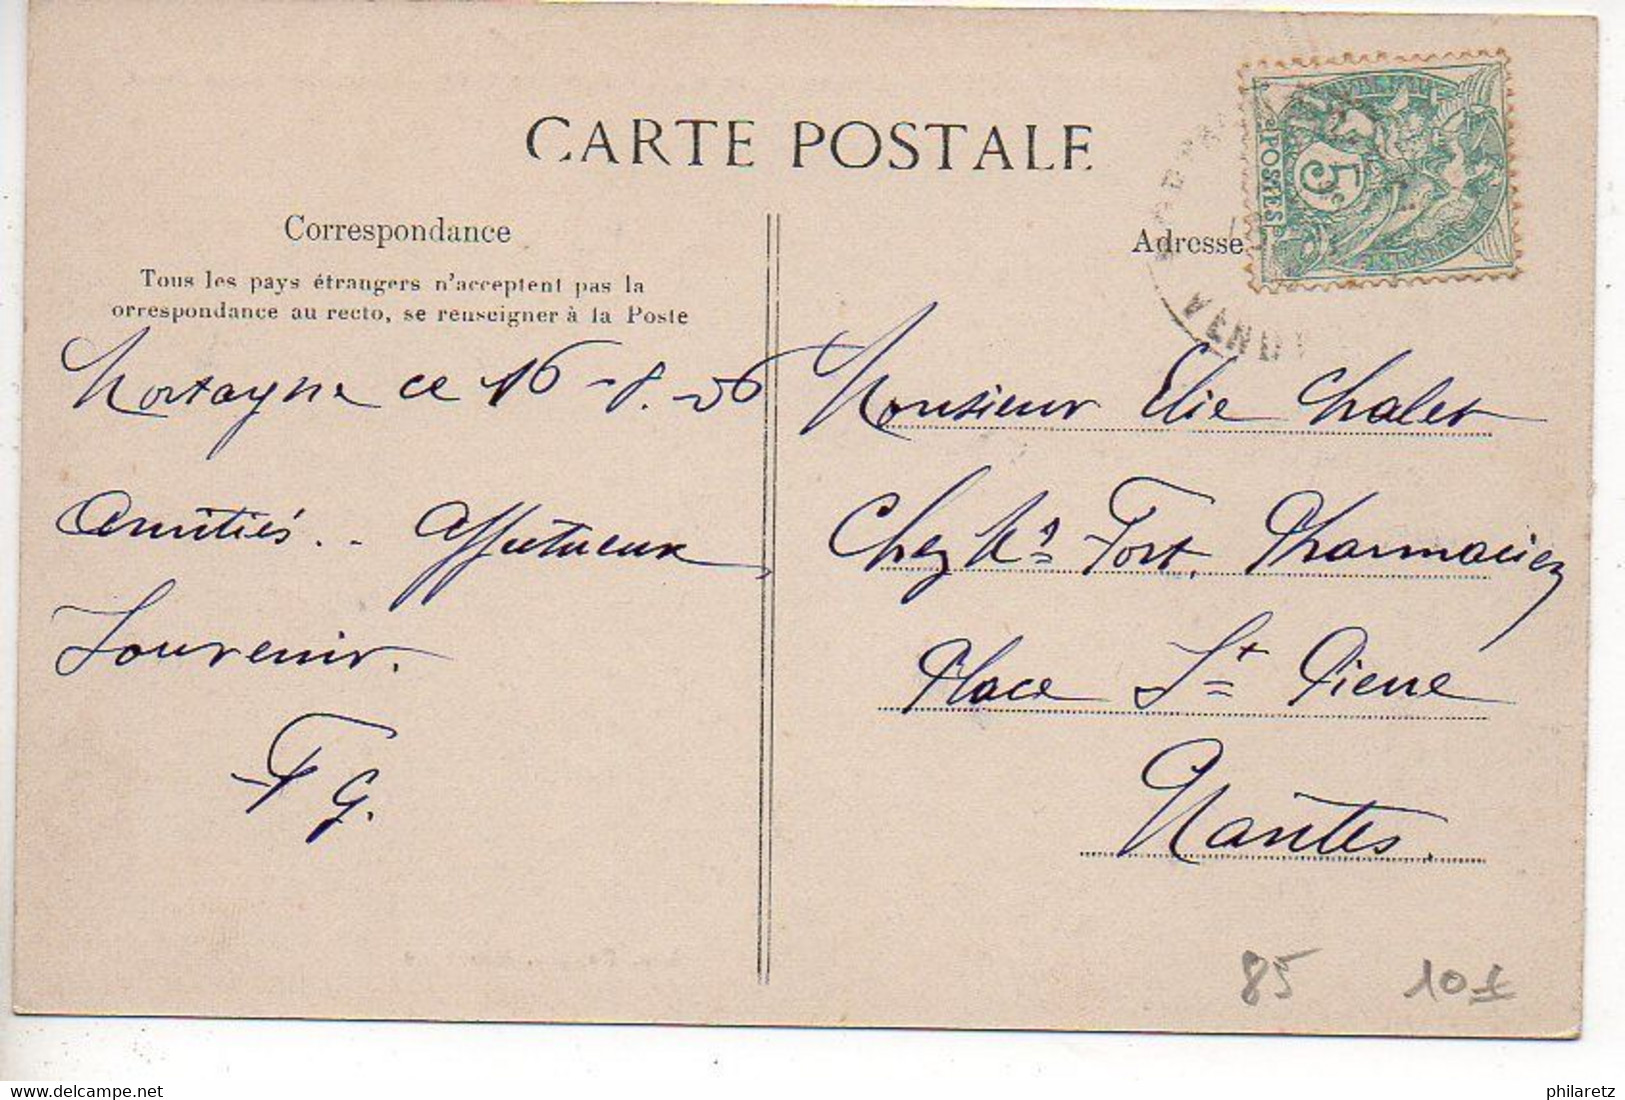 CARTE POSTALE
Correspondance
Tous les pays étrangers n'acceptent pas la
orrespondance au recto, se renseigner à la Poste
Mortagne ce 16-8.06
Amitiés.. affectueux
Souvenir.
F G.
Adresse
POSTES
5c
VEND
Monsieur Elie Chalet
Chez Mr Fort. Pharmacien
Place St Pierre
Nantes.
85 10f
www.delcampe.net
philaretz